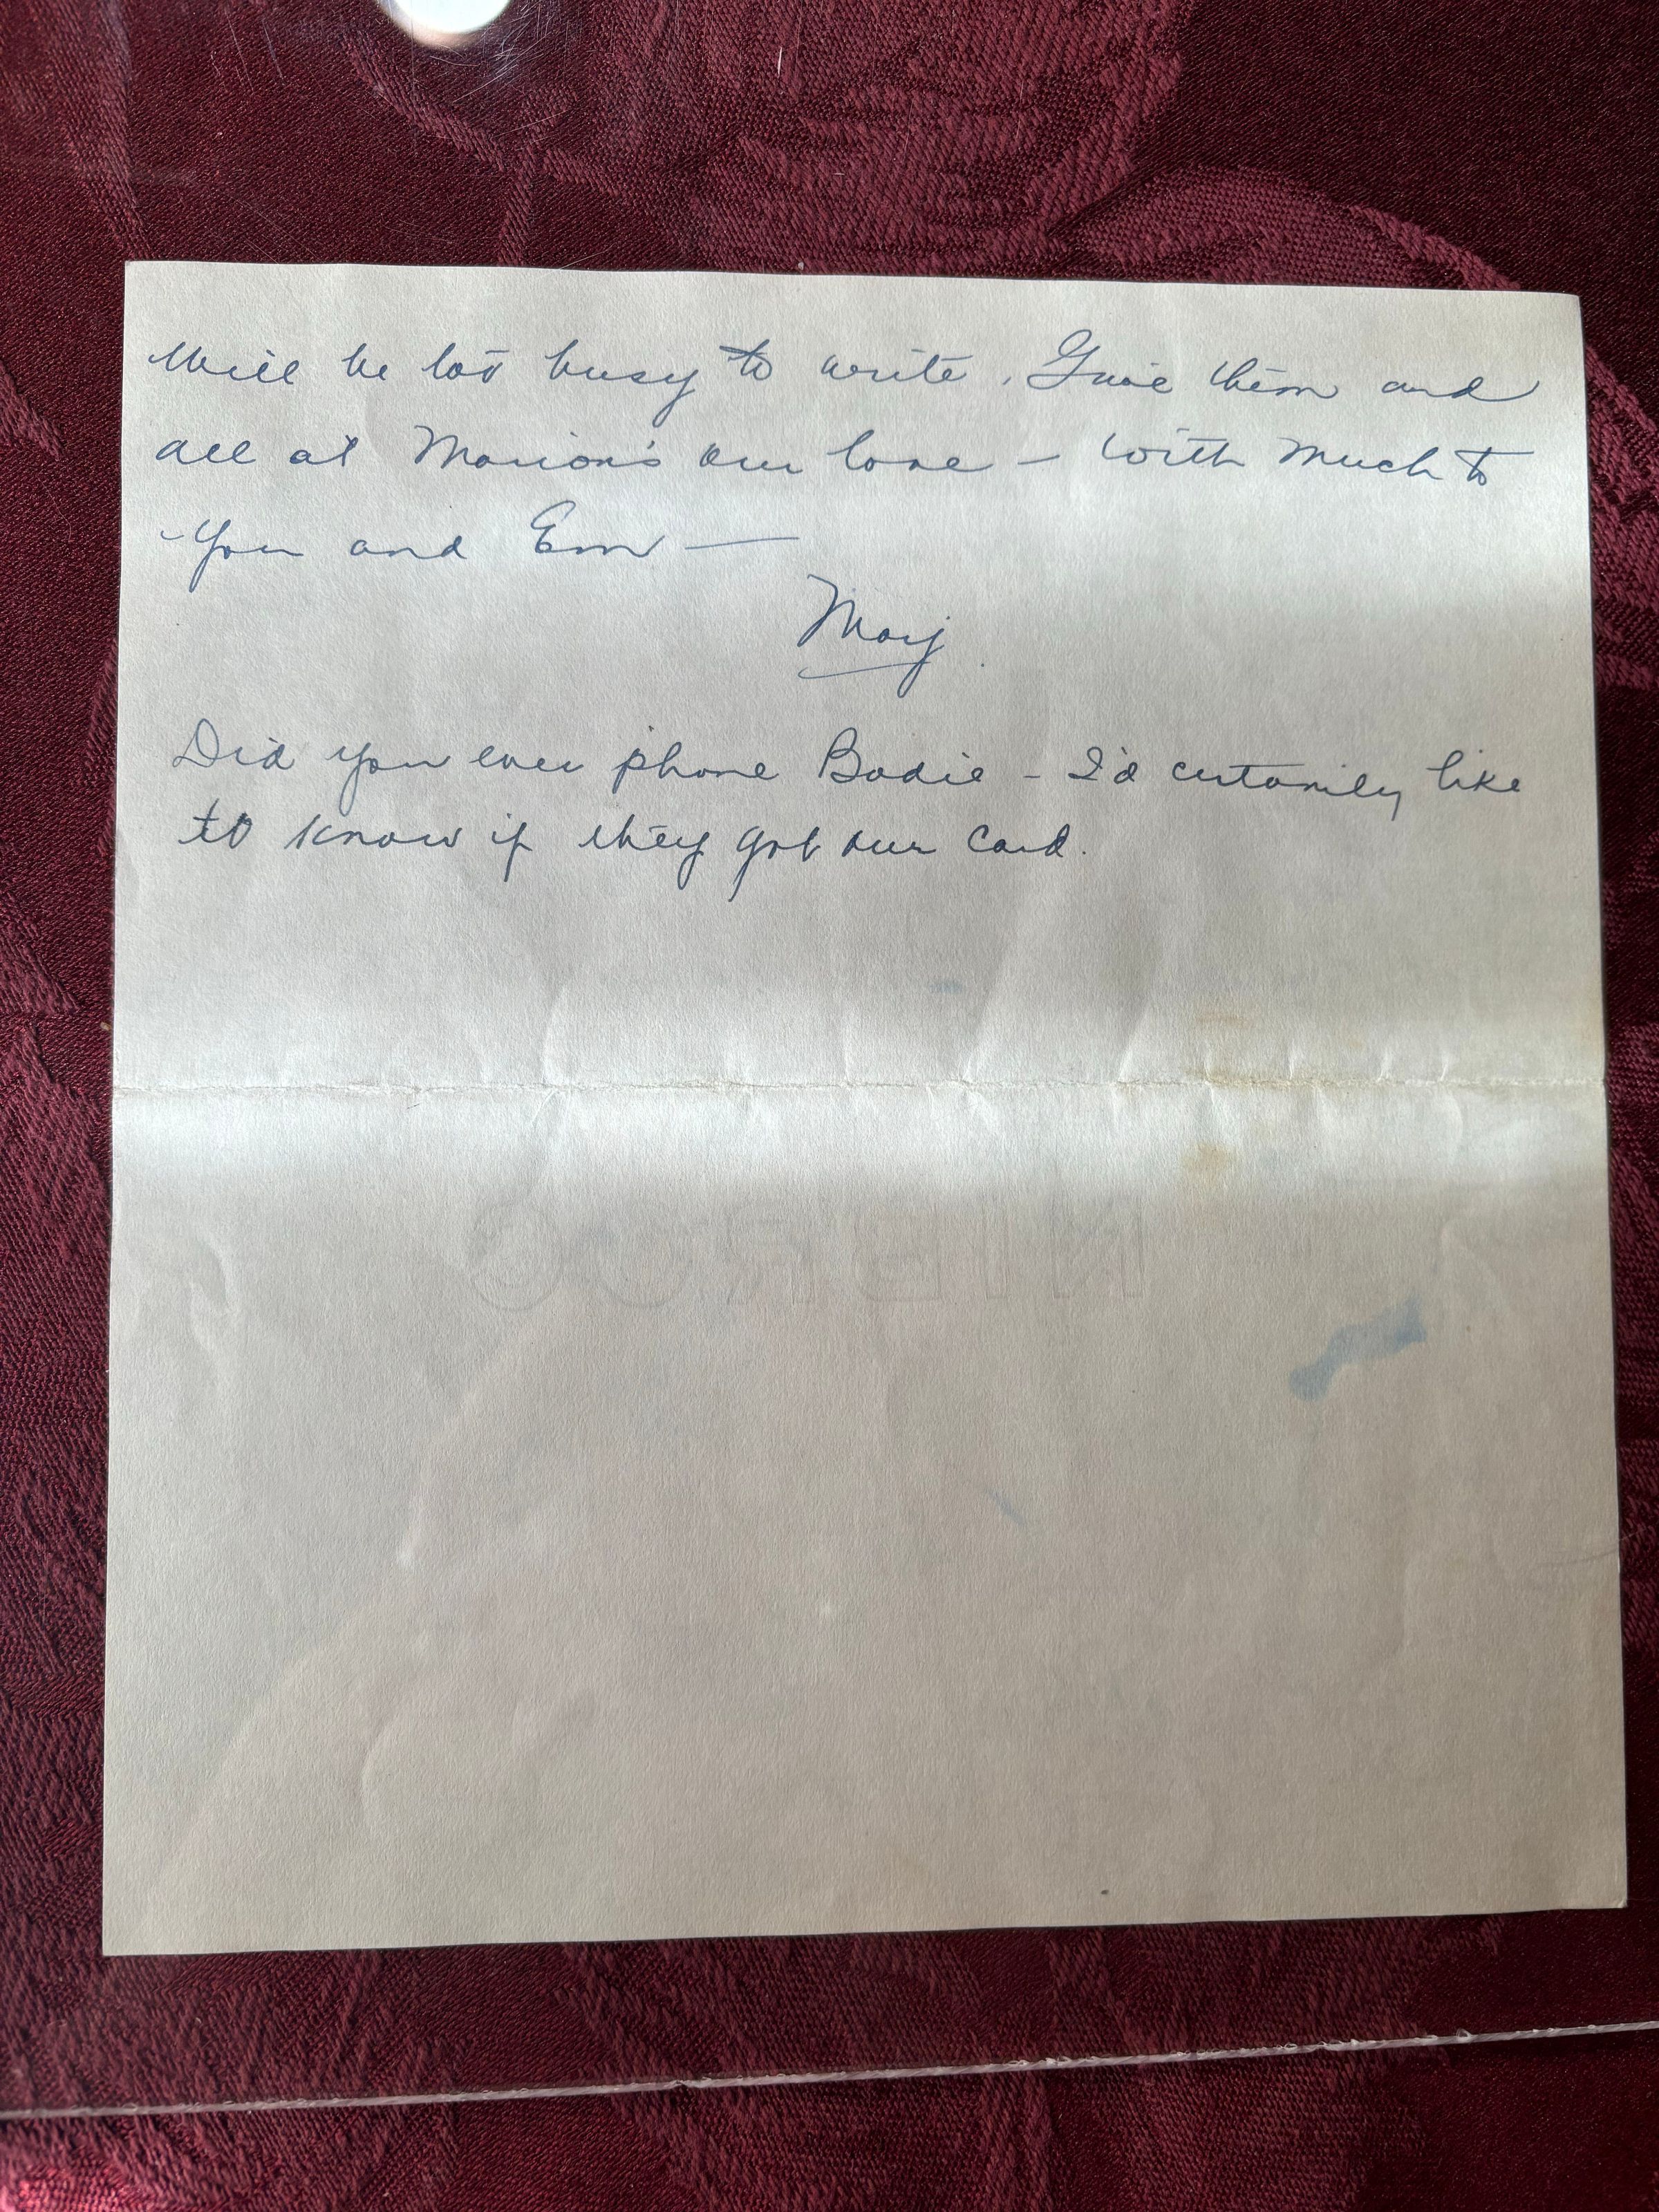 Will be too busy to write. Give them and
all at Marion's our love - with much to
you and Em —
Marj
Did you ever phone Bodie - I'd certainly like
to know if they got our card.